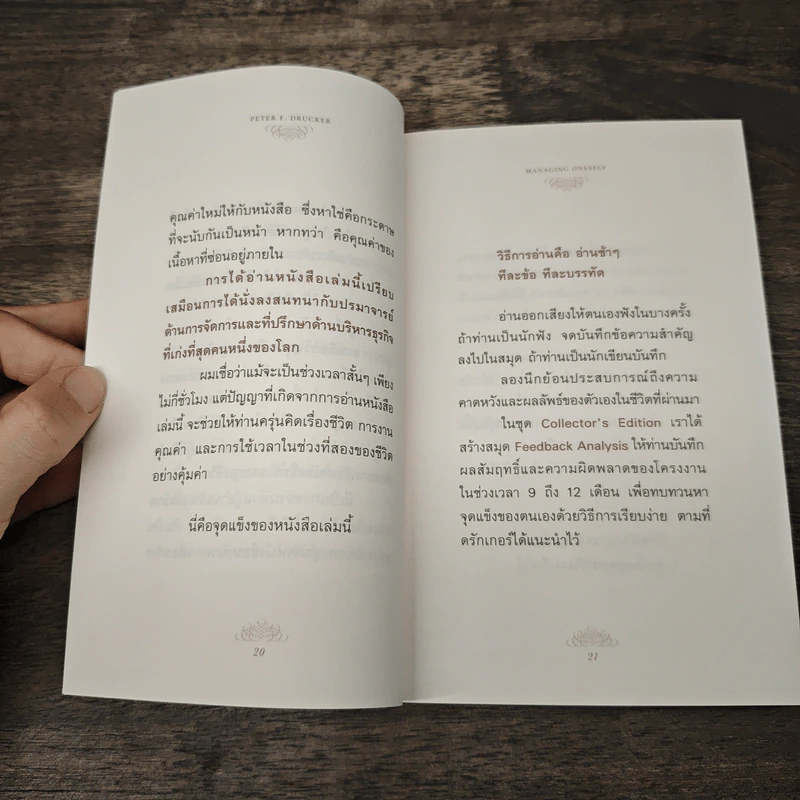 PETER F. DRUCKER
คุณค่าใหม่ให้กับหนังสือ ซึ่งหาใช่คือกระดาษ
ที่จะนับกันเป็นหน้า หากทว่า คือคุณค่าของ
เนื้อหาที่ซ่อนอยู่ภายใน
การได้อ่านหนังสือเล่มนี้เปรียบ
เสมือนการได้นั่งลงสนทนากับปรมาจารย์
ด้านการจัดการและที่ปรึกษาด้านบริหารธุรกิจ
ที่เก่งที่สุดคนหนึ่งของโลก
ผมเชื่อว่าแม้จะเป็นช่วงเวลาสั้นๆ เพียง
ไม่กี่ชั่วโมง แต่ปัญญาที่เกิดจากการอ่านหนังสือ
เล่มนี้ จะช่วยให้ท่านครุ่นคิดเรื่องชีวิต การงาน
คุณค่า และการใช้เวลาในช่วงที่สองของชีวิต
อย่างคุ้มค่า
นี่คือจุดแข็งของหนังสือเล่มนี้
20
MANAGING ONESELF
วิธีการอ่านคือ อ่านช้าๆ
ทีละข้อ ทีละบรรทัด
อ่านออกเสียงให้ตนเองฟังในบางครั้ง
ถ้าท่านเป็นนักฟัง จดบันทึกข้อความสำคัญ
ลงไปในสมุด ถ้าท่านเป็นนักเขียนบันทึก
ลองนึกย้อนประสบการณ์ถึงความ
คาดหวังและผลลัพธ์ของตัวเองในชีวิตที่ผ่านมา
ในชุด Collector's Edition เราได้
สร้างสมุด Feedback Analysis ให้ท่านบันทึก
ผลสัมฤทธิ์และความผิดพลาดของโครงงาน
ในช่วงเวลา 9 ถึง 12 เดือน เพื่อทบทวนหา
จุดแข็งของตนเองด้วยวิธีการเรียบง่าย ตามที่
ดรักเกอร์ได้แนะนำไว้
21